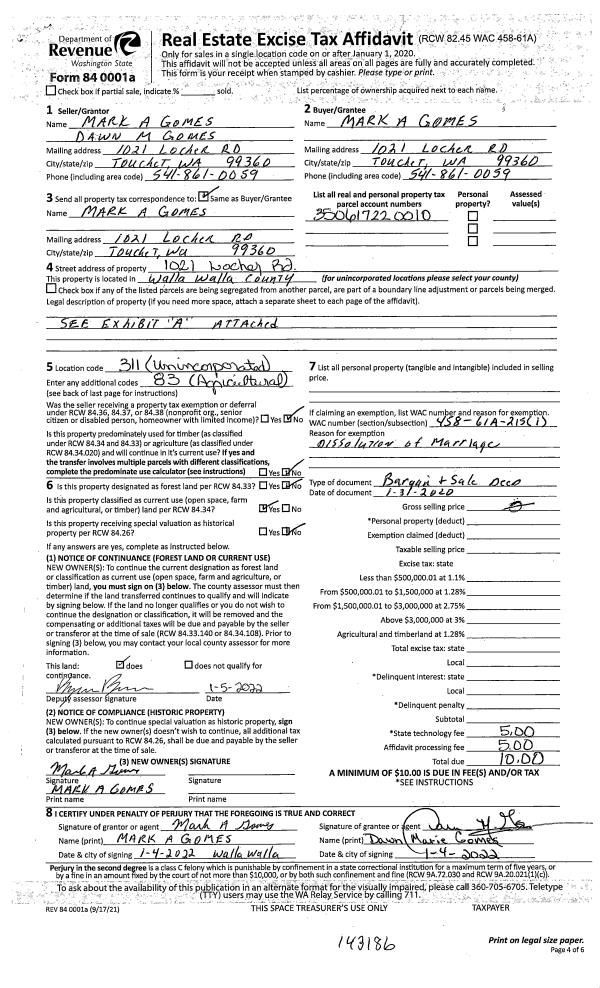 Department of
Revenue
Washington State
Form 84 0001a
Real Estate Excise Tax Affidavit (RCW 82.45 WAC 458-61A)
Only for sales in a single location code on or after January 1, 2020.
This affidavit will not be accepted unless all areas on all pages are fully and accurately completed.
This form is your receipt when stamped by cashier. Please type or print.
Check box if partial sale, indicate % ______ sold.
List percentage of ownership acquired next to each name.
1 Seller/Grantor
Name MARK A GOMES
DAWN M GOMES
Mailing address 1021 LOCHER RD
City/state/zip TOUCHET, WA 99360
Phone (including area code) 541-861-0059
2 Buyer/Grantee
Name MARK A GOMES
Mailing address 1021 LOCHER RD
City/state/zip TOUCHET, WA 99360
Phone (including area code) 541-861-0059
3 Send all property tax correspondence to: Same as Buyer/Grantee
Name MARK A GOMES
Mailing address 1021 LOCHER RD
City/state/zip TOUCHET, WA 99360
List all real and personal property tax
parcel account numbers
350617220010
Personal
property?
Assessed
value(s)
4 Street address of property 1021 Locher Rd.
This property is located in Walla Walla County (for unincorporated locations please select your county)
Check box if any of the listed parcels are being segregated from another parcel, are part of a boundary line adjustment or parcels being merged.
Legal description of property (if you need more space, attach a separate sheet to each page of the affidavit).
SEE EXHIBIT "A" ATTACHED
5 Location code 311 (Unincorporated)
Enter any additional codes 83 (Agricultural)
(see back of last page for instructions)
Was the seller receiving a property tax exemption or deferral
under RCW 84.36, 84.37, or 84.38 (nonprofit org., senior
citizen or disabled person, homeowner with limited income)? Yes No
Is this property predominately used for timber (as classified
under RCW 84.34 and 84.33) or agriculture (as classified under
RCW 84.34.020) and will continue in it's current use? If yes and
the transfer involves multiple parcels with different classifications,
complete the predominate use calculator (see instructions) Yes No
6 Is this property designated as forest land per RCW 84.33? Yes No
Is this property classified as current use (open space, farm
and agricultural, or timber) land per RCW 84.34? Yes No
Is this property receiving special valuation as historical
property per RCW 84.26? Yes No
If any answers are yes, complete as instructed below.
(1) NOTICE OF CONTINUANCE (FOREST LAND OR CURRENT USE)
NEW OWNER(S): To continue the current designation as forest land
or classification as current use (open space, farm and agriculture, or
timber) land, you must sign on (3) below. The county assessor must then
determine if the land transferred continues to qualify and will indicate
by signing below. If the land no longer qualifies or you do not wish to
continue the designation or classification, it will be removed and the
compensating or additional taxes will be due and payable by the seller
or transferor at the time of sale (RCW 84.33.140 or 84.34.108). Prior to
signing (3) below, you may contact your local county assessor for more
information.
This land: does does not qualify for
continuance.
1-5-2022
Deputy assessor signature Date
(2) NOTICE OF COMPLIANCE (HISTORIC PROPERTY)
NEW OWNER(S): To continue special valuation as historic property, sign
(3) below. If the new owner(s) doesn't wish to continue, all additional tax
calculated pursuant to RCW 84.26, shall be due and payable by the seller
or transferor at the time of sale.
(3) NEW OWNER(S) SIGNATURE
Mark A Gomes
Signature Signature
MARK A GOMES
Print name Print name
7 List all personal property (tangible and intangible) included in selling
price.
If claiming an exemption, list WAC number and reason for exemption.
WAC number (section/subsection) 458-61A-215(1)
Reason for exemption
Dissolution of Marriage
Type of document Bargain + Sale Deed
Date of document 1-31-2020
Gross selling price 0
*Personal property (deduct)
Exemption claimed (deduct)
Taxable selling price
Excise tax: state
Less than $500,000.01 at 1.1%
From $500,000.01 to $1,500,000 at 1.28%
From $1,500,000.01 to $3,000,000 at 2.75%
Above $3,000,000 at 3%
Agricultural and timberland at 1.28%
Total excise tax: state
Local
*Delinquent interest: state
Local
*Delinquent penalty
Subtotal
*State technology fee 5.00
Affidavit processing fee 5.00
Total due 10.00
A MINIMUM OF $10.00 IS DUE IN FEE(S) AND/OR TAX
*SEE INSTRUCTIONS
8 I CERTIFY UNDER PENALTY OF PERJURY THAT THE FOREGOING IS TRUE AND CORRECT
Signature of grantor or agent Mark A Gomes
Name (print) MARK A GOMES
Date & city of signing 1-4-2022 Walla Walla
Signature of grantee or agent
Name (print) Dawn Marie Gomes
Date & city of signing 1-4-2022
Perjury in the second degree is a class C felony which is punishable by confinement in a state correctional institution for a maximum term of five years, or
by a fine in an amount fixed by the court of not more than $10,000, or by both such confinement and fine (RCW 9A.72.030 and RCW 9A.20.021(1)(c)).
To ask about the availability of this publication in an alternate format for the visually impaired, please call 360-705-6705. Teletype
(TTY) users may use the WA Relay Service by calling 711.
REV 84 0001a (9/17/21)
THIS SPACE TREASURER'S USE ONLY
TAXPAYER
143186
Print on legal size paper.
Page 4 of 6